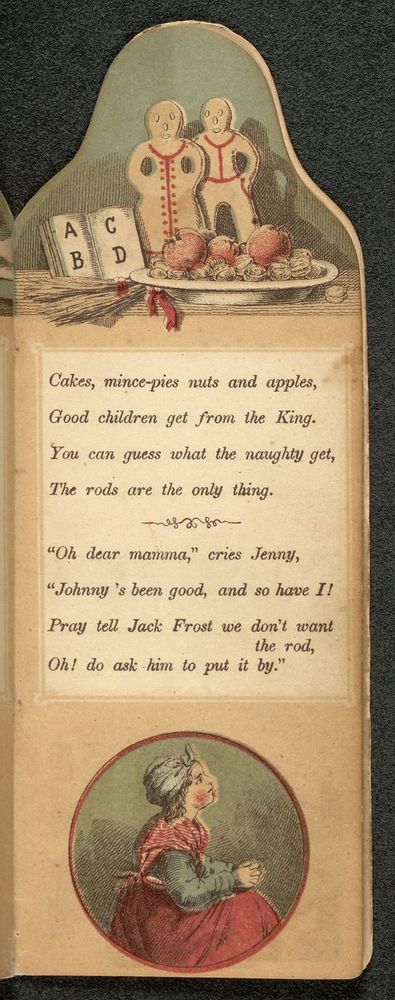 A C
B D
Cakes, mince-pies nuts and apples,
Good children get from the King.
You can guess what the naughty get,
The rods are the only thing.
"Oh dear mamma," cries Jenny,
"Johnny 's been good, and so have I!
Pray tell Jack Frost we don't want
the rod,
Oh! do ask him to put it by."